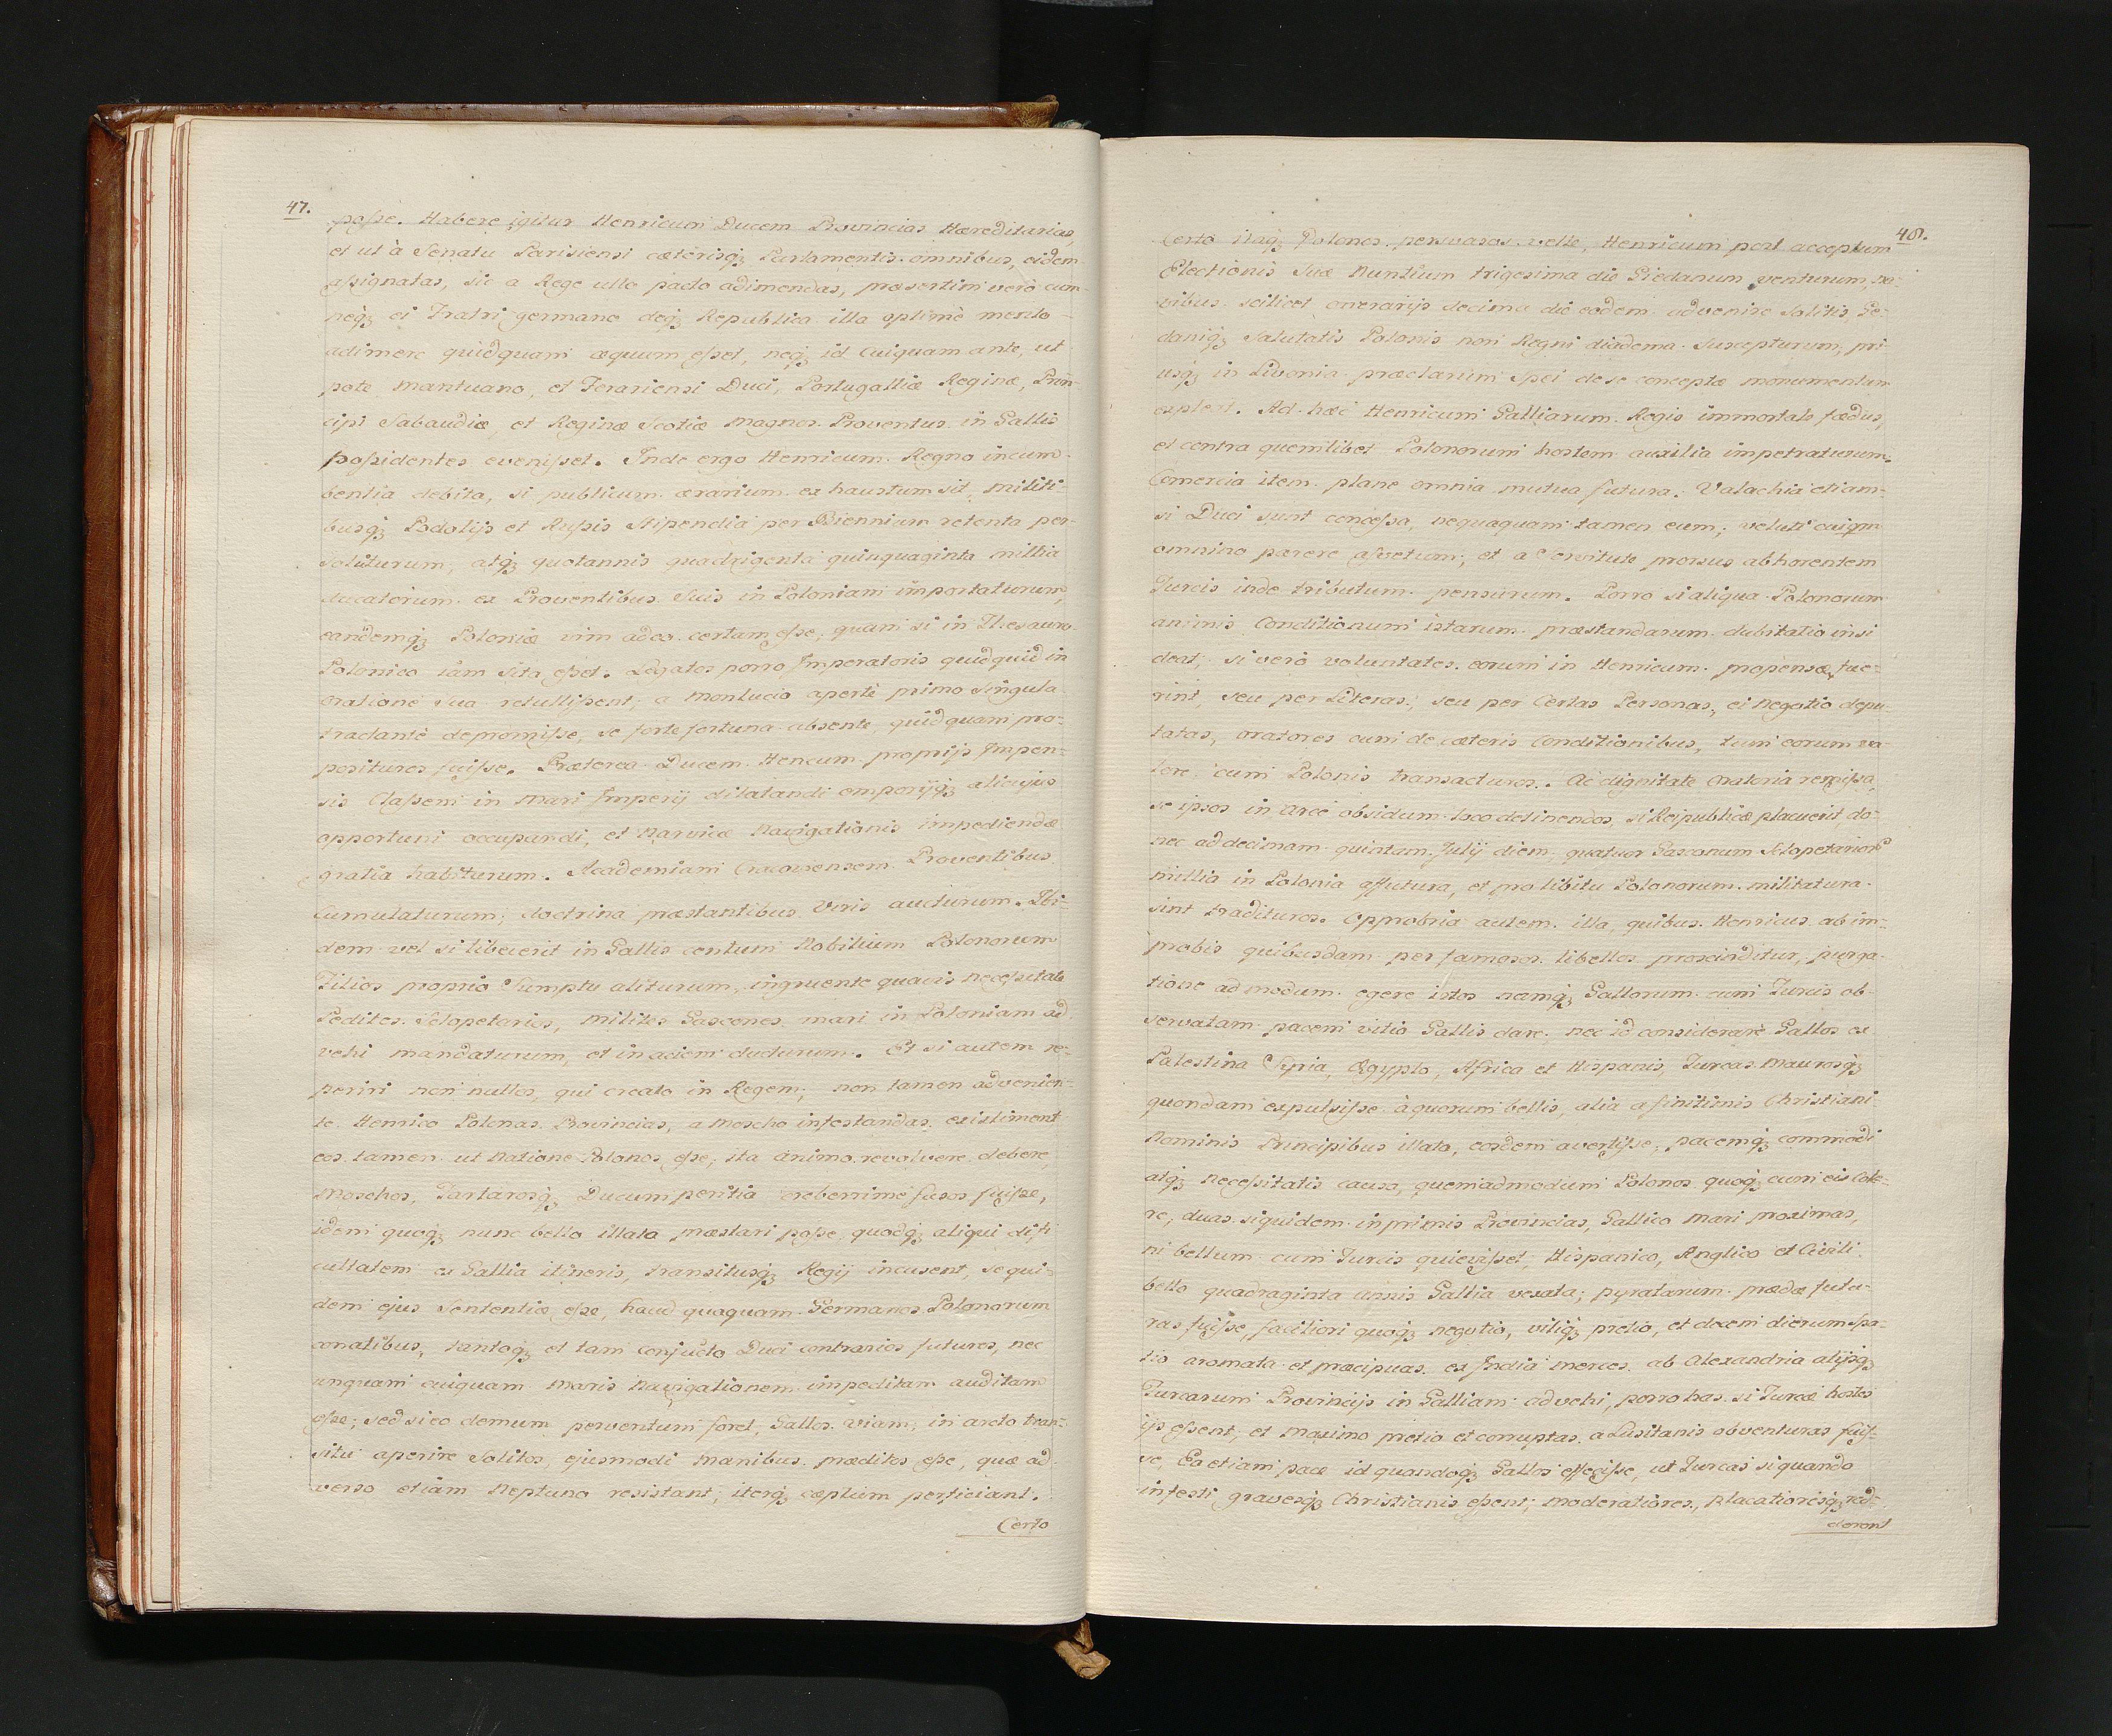 47.
posse. Habere igitur Henricum Ducem Provincias Hæreditarias,
et ut à Senatu Parisiensi cæterisq; Parlamentis omnibus, eidem
assignatas, sic a Rege ullo pacto adimendas, præsertim verò cum
neq; ei Fratri germano deq; Republica illa optimè merito
adimere quidquam æquum esset, neq; id cuiquam ante, ut
pote Mantuano, et Ferariensi Duci, Portugalliæ Reginæ, Prin-
cipi Sabaudiæ, et Reginæ Scotiæ magnos Proventus in Gallis
possidentes evenisset. Inde ergo Henricum Regno incum-
bentia debita, si publicum ærarium exhaustum sit, militi-
busq; Podolijs et Russis stipendia per Biennium retenta per-
soluturum, atq; quotannis quadrigenta quinquaginta millia
ducatorum ex Proventibus suis in Poloniam importaturum,
eandemq; Poloniæ vim adeo certam esse, quam si in Thesauro
Polonico iam sita esset. Legatos porro Imperatoris quidquid in
oratione sua retulissent, a Monlucio apertè primo singula
tractante depromisse, se forte fortuna absente, quidquam pro-
posituros fuisse. Præterea Ducem Hencum proprijs Impen-
sis Classem in mari Imperij dilatandi emporijq; alicujus
opportuni occupandi, et Narvicæ Navigationis impediendæ
gratia habiturum. Academiam Cracoviensem Proventibus
cumulaturum; doctrina præstantibus Viris aucturum. Ibi-
dem vel si libuerit in Gallis centum Nobilium Polonorum
Filios proprio Sumptu aliturum, ingruente quavis necessitate
Pedites Sclopetarios, milites Gascones mari in Poloniam ad-
vehi mandaturum, et in aciem ducturum. Et si autem re-
periri non nullos, qui creato in Regem, non tamen advenien-
te Henrico Polonas Provincias, a Moscho infestandas existiment
eos tamen ut Natione Polonos esse, ita animo revolvere debere,
Moschos, Tartarosq; Ducum peritia creberrimè fusos fuisse,
idem quoq; nunc bello illato præstari posse, quodq; aliqui diffi
cultatem ex Gallia itineris, transitusq; Regij incusent, se qui-
dem ejus Sententiæ esse, haud quaquam Germanos Polonorum
conatibus, tantoq; et tam conjucto Duci contrarios futuros, nec
unquam cuiquam maris Navigationem impeditam auditam
esse; sed si eo demum perventum foret, Gallos viam in arcto tran-
situ aperire Solitos, ejusmodi manibus præditos esse, quæ ad-
verso etiam Neptuno resistant, iterq; cæptum perficiant.
Certo
48.
Certo itaq; Polonos persuasos velle, Henricum post acceptum
Electionis Suæ Nuntium trigesima die Giedanum venturum, na-
vibus scilicet onerarijs decima die eodem advenire Solitis Ge-
daniq; Salutatis Polonis non Regni diadema Suscepturum, pri-
usq; in Livonia præclarum Spei de se conceptæ monumentum
expleat. Ad hæc Henricum Galliarum Regis immortale fædus,
et contra quemlibet Polonorum hostem auxilia impetraturum.
Comercia item plane omnia mutua futura. Valachia etiam-
si Duci sunt concessa, nequaquam tamen eum, veluti cuiqm
omnino parere assvetum; et a Servitute prorsus abhorentem
Turcis inde tributum pensurum. Porro si aliqua Polonorum
animis Conditionum istarum præstandarum dubitatio insi
deat, si verò voluntates eorum in Henricum propensæ fue-
rint, seu per Literas, seu per Certas Personas, ei negotio depu-
tatas, oratores cum de cæteris Conditionibus, tum eorum va-
lore, cum Polonis transacturos. Ac dignitate Oratoria remissa,
se ipsos in arce obsidum loco detinendos, si Reipublicæ placuerit, do-
nec ad decimam quintam Julij diem, quatuor Gasconum Sclopetarior
millia in Polonia affutura, et pro libitu Polonorum militatura
sint tradituros. Opprobria autem illa, quibus Henricus ab im-
probis quibusdam per famosos libellos proscinditur, purga-
tione admodum egere istos namq; Gallorum cum Turcis ob-
servatam pacem vitio Gallis dare, nec id considerare Gallos ex
Palestina Syria, Ægypto, Africa et Hispanis, Turcas Maurosq;
quondam expulsisse à quorum bellis, alia a finitimis Christiani
Nominis Principibus illata, eosdem avertisse, pacemq; commodi
atq; necessitatis causa, quemadmodum Polonos quoq; cum eis Cole-
re; duas siquidem inprimis Provincias, Gallico mari proximas,
ni bellum cum Turcis quievisset, Hispanico, Anglico et Civili
bello quadraginta annis Gallia vexata; pyratarum prædæ futu-
ras fuisse, faciliori quoq; negotio, viliq; pretio, et decem dierum spa-
tio aromata et præcipuas ex India merces ab Alexandria alijsq;
Turcarum Provincijs in Galliam advehi, porro has si Turcæ hostes
ijs essent, et maximo pretio et corruptas a Lusitanis obventuras fuis-
se, Ea etiam pace id quandoq; Gallos effecisse, ut Turcas si quando
infesti gravesq; Christianis essent, moderatiores, placatioresq; red-
derent